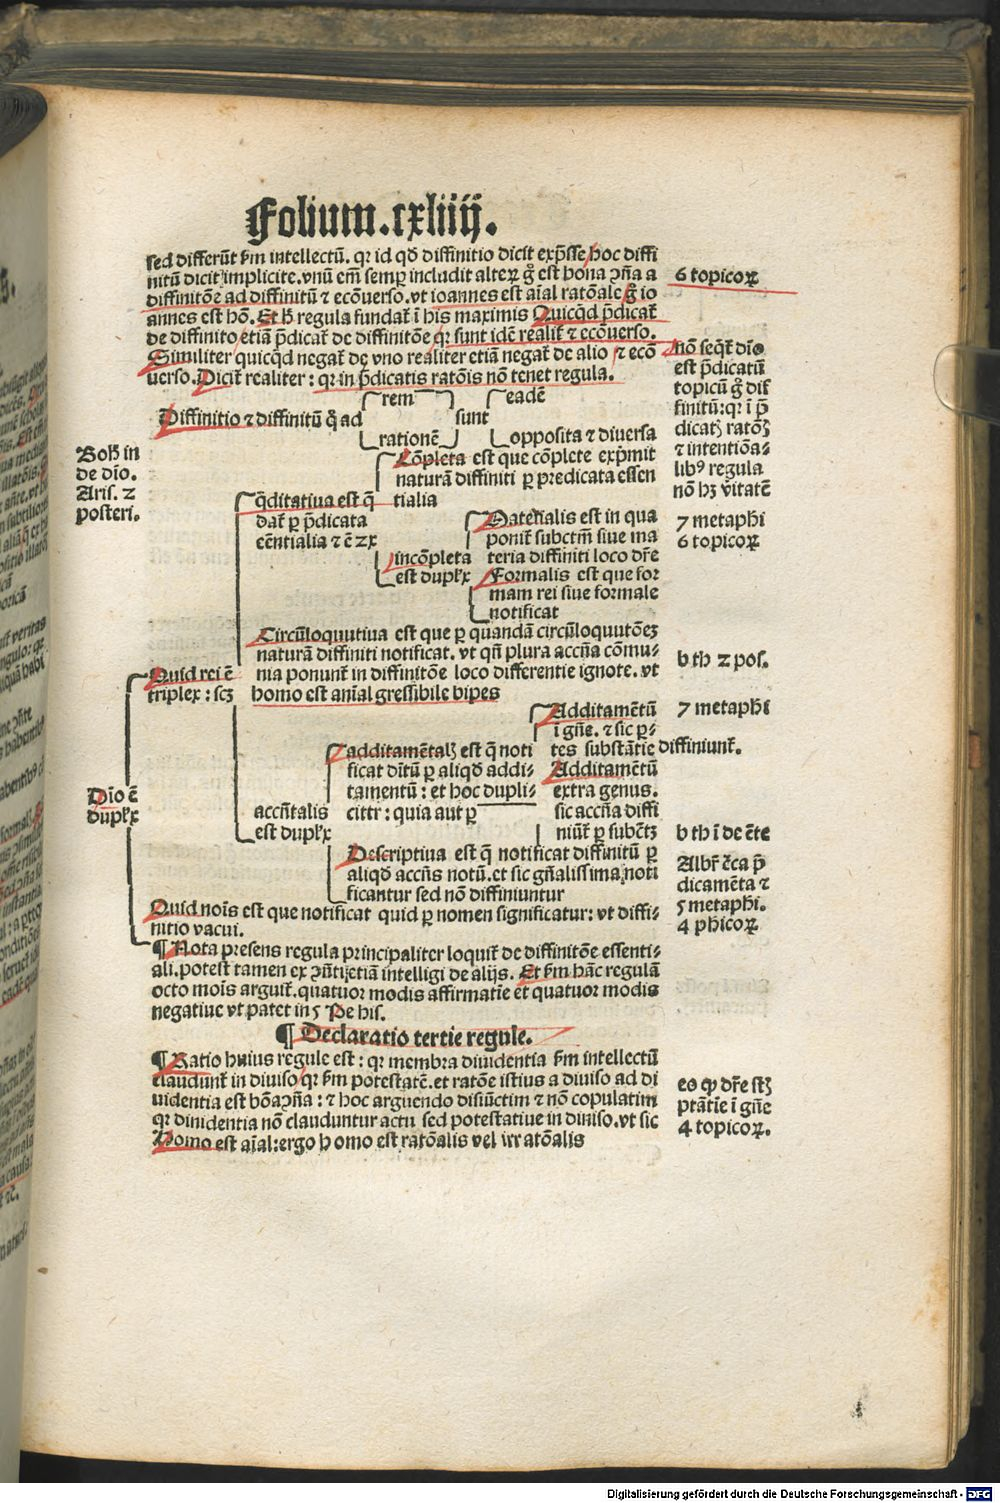 Folium.cxliiij.
sed differūt ẜm intellectū. qr id qd̄ diffinitio dicit exp̄sse hoc diffi
nitū dicit implicite. vnū em̄ semꝑ includit alteꝝ gͦ est bona ↄ̄ña a
diffinitōe ad diffinitū ⁊ ecōuerso. vt ioannes est aīal ratōale gͦ io
annes est hō. Et h̄ regula fundat̄ ī his maximis Quicqd p̄dicat̄
de diffinito etiā p̄dicat̄ de diffinitōe qr sunt idē realit̄ ⁊ ecōuerso.
Similiter quicqd negat̄ de vno realiter etiā negat̄ de alio ⁊ ecō
uerso. Dicit̄ realiter : qr in p̄dicatis ratōis nō tenet regula.
6 topicoꝝ
nō seqt̄ dīo
est p̄dicatū
topicū gͦ dif
finitū: qr ī p̄
dicatꝭ ratōꝭ
⁊ intentiōa⸗
libꝰ regula
nō hꝫ v̄itatē
Diffinitio ⁊ diffinitū q̄ ad
rem
rationē
sunt
eadē
opposita ⁊ diuersa
Boh̄ in
de dīo.
Aris. 2
posteri.
Dīo ē
dupl̄x
Quid rei ē
triplex : scꝫ
q̄ditatiua est q̄
dat̄ ꝑ p̄dicata
eēntialia ⁊ ē 2x
Cōpleta est que cōplete exp̄mit
naturā diffiniti ꝑ predicata essen
tialia
incōpleta
est dupl̄x
Materialis est in qua
ponit̄ subctm̄ siue ma
teria diffiniti loco dr̄e
Formalis est que for
mam rei siue formale
notificat
7 metaph̄i
6 topicoꝝ
Circūloquutiua est que ꝑ quandā circūloquutōeꝫ
naturā diffiniti notificat. vt qn̄ plura accn̄a cōmu⸗
nia ponunt̄ in diffinitōe loco differentie ignote. vt
homo est anīal gressibile bipes
b th 2 pos.
accn̄talis
est dupl̄x
additamētal̄ est q̄ noti
ficat dītū ꝑ aliqd̄ addi⸗
tamentū : et hoc dupli⸗
citr : quia aut ꝑ
Additamētū
ī gn̄e. ⁊ sic ꝑ⸗
tes substātie diffiniunt̄.
Additamētū
extra genus.
sic accn̄a diffi
niūt̄ ꝑ subēt̄ꝫ
Descriptiua est q̄ notificat diffinitū ꝑ
aliqd̄ accn̄s notū. et sic gn̄alissima noti
ficantur sed nō diffiniuntur
7 metaph̄i
b th ī de ēte
Albr̄ c̄ca p̄
dicamēta ⁊
5 metaphi.
4 phicoꝝ
Quid noīs est que notificat quid ꝑ nomen significatur: vt diffi⸗
nitio vacui.
¶ Nota presens regula principaliter loquit̄ de diffinitōe essenti⸗
ali. potest tamen ex ↄ̄n̄ti etiā intelligi de alijs. Et ẜm hāc regulā
octo moīs arguit̄. quatuor modis affirmatīe et quatuor modis
negatiue vt patet in 5 Pe his.
¶ Declaratio tertie regule.
¶ Ratio huius regule est : qr membra diuidentia ẜm intellectū
claudunt̄ in diuiso qr ẜm potestatē. et ratōe istius a diuiso ad di
uidentia est bōa ↄ̄ña : ⁊ hoc arguendo disiūctim ⁊ nō copulatim
qr diuidentia nō clauduntur actu sed potestatiue in diuiso. vt sic
Homo est aīal: ergo homo est ratōalis vel irratōalis
eo ꝙ dr̄e st̄ꝫ
ptātīe ī gn̄e
4 topicoꝝ.
Digitalisierung gefördert durch die Deutsche Forschungsgemeinschaft - DFG